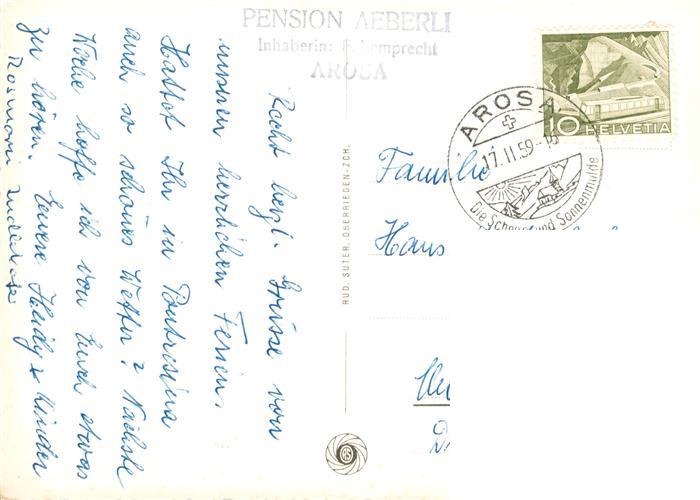 PENSION AEBERLI
Inhaberin: F. Lamprecht
AROSA
Recht herzl. Grüsse von
unseren herrlichen Ferien.
Hattet Ihr in Pontresina
auch so schönes Wetter? Nächste
Woche hoffe ich von Euch etwas
zu hören. Euere Heidy & Kinder
Rosmarie
RUD. SUTER, OBERRIEDEN-ZCH.
AROSA
17.11.59
Die Schnee und Sonnenmulde
10 HELVETIA
Familie
Hans